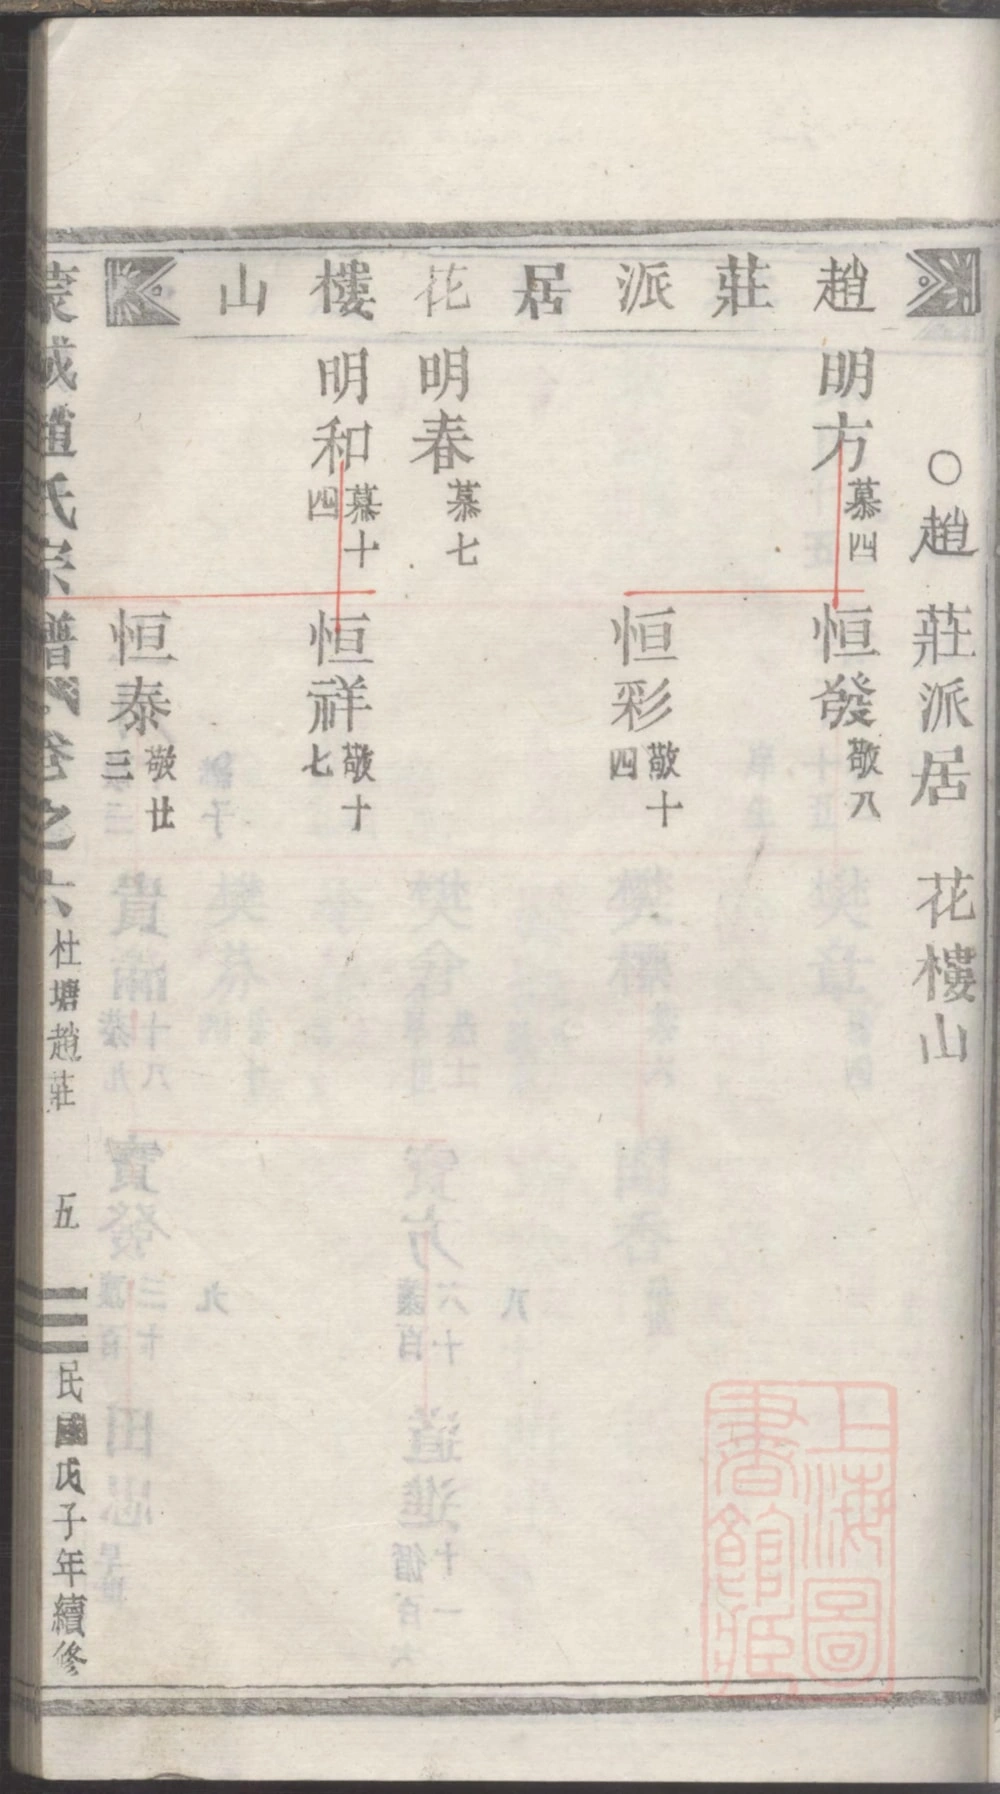 趙莊派居花樓山
○趙莊派居 花樓山
明方 慕四
恒發 敬八
恒彩 敬十四
明春 慕七
明和 慕十四
恒祥 敬十七
恒泰 敬廿三
趙氏宗譜 卷之六 杜塘趙莊 五 民國戊子年續修
上海圖書館藏